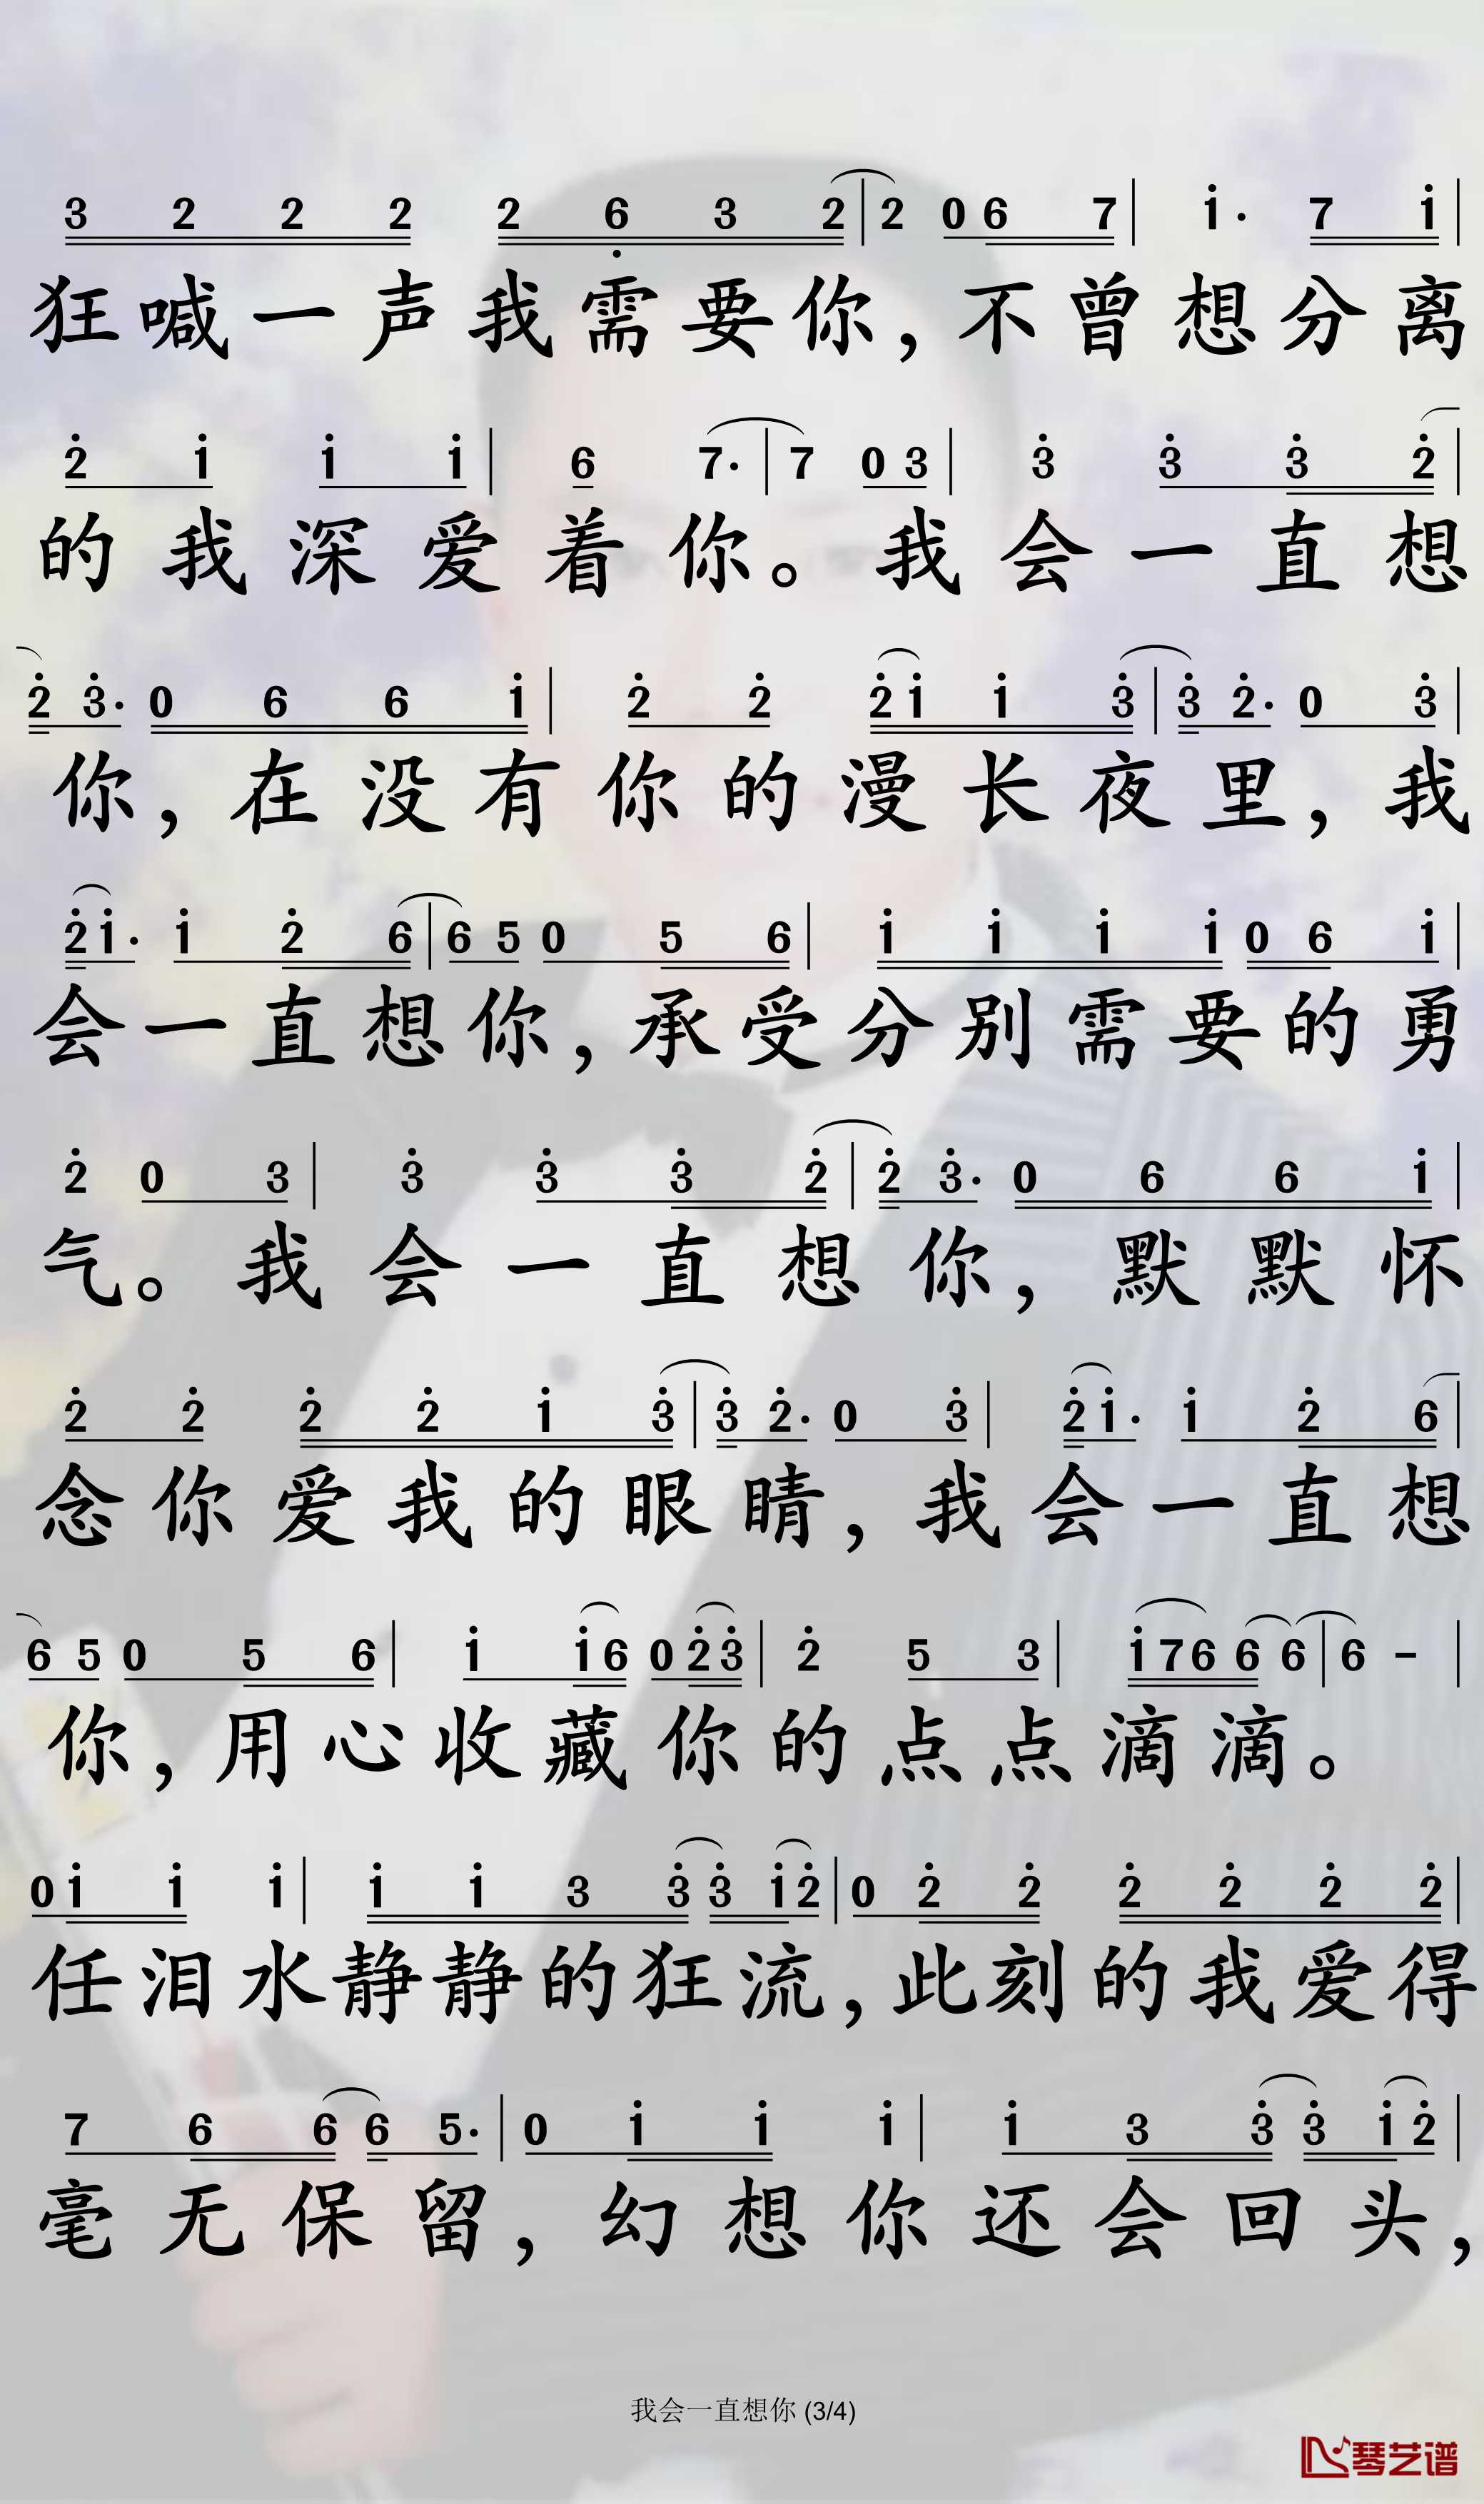 3 2 2 2 2 6̣ 3 2 | 2 0 6 7 | 1̇· 7 1̇ |
狂喊一声我需要你，不曾想分离
2̇ 1̇ 1̇ 1̇ | 6 7· | 7 0 3 | 3̇ 3̇ 3̇ 2̇ |
的我深爱着你。我会一直想
2̇ 3̇· 0 6 6 1̇ | 2̇ 2̇ 2̇ 1̇ 1̇ 3̇ | 3̇ 2̇· 0 3̇ |
你，在没有你的漫长夜里，我
2̇ 1̇· 1̇ 2̇ 6 | 6 5 0 5 6 | 1̇ 1̇ 1̇ 1̇ 0 6 1̇ |
会一直想你，承受分别需要的勇
2̇ 0 3 | 3̇ 3̇ 3̇ 2̇ | 2̇ 3̇· 0 6 6 1̇ |
气。我会一直想你，默默怀
2̇ 2̇ 2̇ 2̇ 1̇ 3̇ | 3̇ 2̇· 0 3̇ | 2̇ 1̇· 1̇ 2̇ 6 |
念你爱我的眼睛，我会一直想
6 5 0 5 6 | 1̇ 1̇ 6 0 2̇ 3̇ | 2̇ 5 3 | 1̇ 7 6 6 6 | 6 - |
你，用心收藏你的点点滴滴。
0 1̇ 1̇ 1̇ | 1̇ 1̇ 3 3̇ 3̇ 1̇ 2̇ | 0 2̇ 2̇ 2̇ 2̇ 2̇ 2̇ |
任泪水静静的狂流，此刻的我爱得
7 6 6 6 5· | 0 1̇ 1̇ 1̇ | 1̇ 3 3̇ 3̇ 1̇ 2̇ |
毫无保留，幻想你还会回头，
我会一直想你 (3/4)
琴艺谱